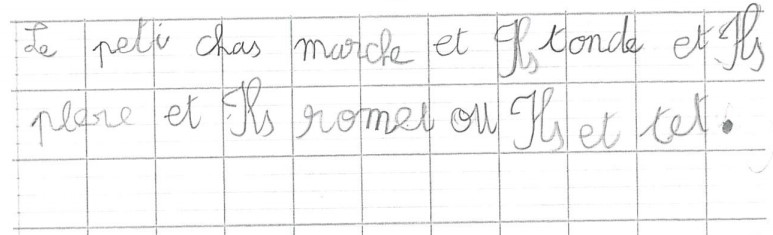 Le peti chas marche et Ils tonde et Ils
plere et Ils romet ou Ils et tet.